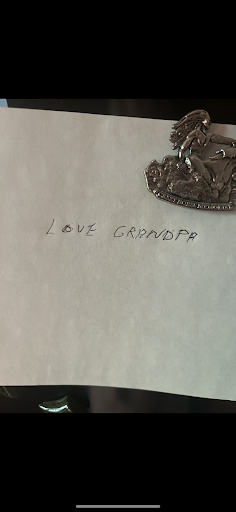 LOVE GRANDPA